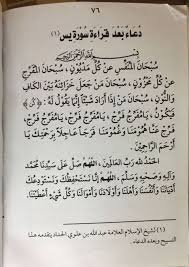 ٧٦
دُعَاءٌ بَعْدَ قِرَاءَةِ سُوْرَةِ يس (١)
سُبْحَانَ الْمُنَفِّسِ عَنْ كُلِّ مَدْيُوْنٍ ، سُبْحَانَ الْمُفَرِّجِ
عَنْ كُلِّ مَحْزُوْنٍ ، سُبْحَانَ مَنْ جَعَلَ خَزَائِنَهُ بَيْنَ الْكَافِ
وَالنُّوْنِ ، سُبْحَانَ مَنْ إِذَا أَرَادَ شَيْئًا إِنَّمَا يَقُوْلُ لَهُ : ﴿ كُنْ ﴾
فَيَكُوْنُ ، يَا مُفَرِّجُ فَرِّجْ ، يَا مُفَرِّجُ فَرِّجْ ، يَا مُفَرِّجُ فَرِّجْ ،
فَرِّجْ عَنَّا هُمُوْمَنَا وَغُمُوْمَنَا فَرَجًا عَاجِلًا بِرَحْمَتِكَ يَا
أَرْحَمَ الرَّاحِمِيْنَ
الْحَمْدُ لِلّٰهِ رَبِّ الْعَالَمِيْنَ ، اَللّٰهُمَّ صَلِّ عَلَى سَيِّدِنَا مُحَمَّدٍ
وَآلِهِ وَصَحْبِهِ وَسَلِّمْ ، اَللّٰهُمَّ إِنَّا نَسْتَحْفِظُكَ وَنَسْتَوْدِعُكَ
أَدْيَانَنَا وَأَنْفُسَنَا وَأَهْلَنَا وَأَوْلَادَنَا وَأَمْوَالَنَا وَكُلَّ شَيْءٍ أَعْطَيْتَنَا
(١) لشيخ الإسلام العلامة عبد الله بن علوي الحداد يتقدمه هذا
التسبيح وبعده الدعاء.